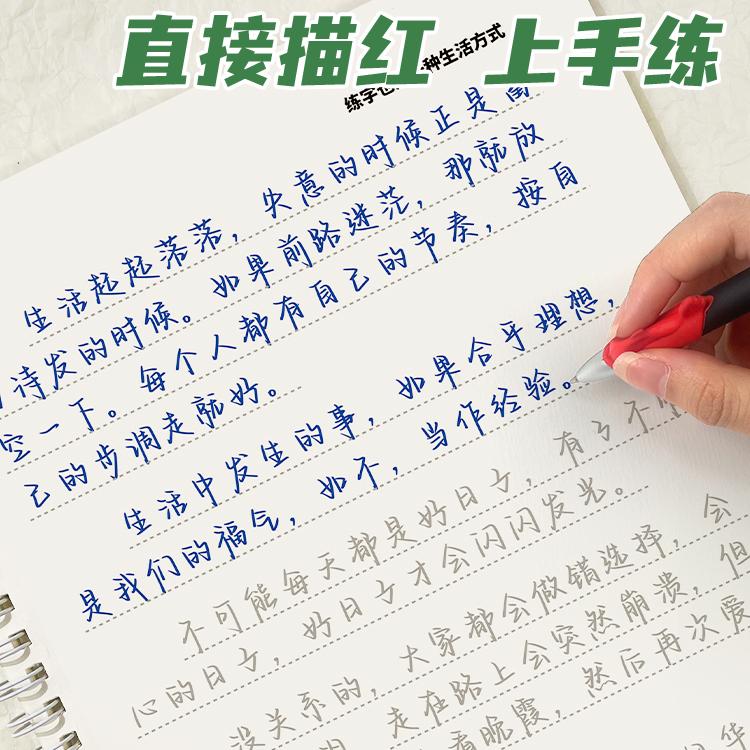 直接描红 上手练
练字也 种生活方式
生活起起落落，失意的时候正是
待发的时候。如果前路迷茫，那就放
空一下。每个人都有自己的节奏，按自
己的步调走就好。
生活中发生的事，如果合乎理想，
是我们的福气，如不，当作经验。
不可能每天都是好日子，有了不
心的日子，好日子才会闪闪发光。
没关系的，大家都会做错选择，会
走在路上会突然崩溃，但
看晚霞，然后再次爱
华